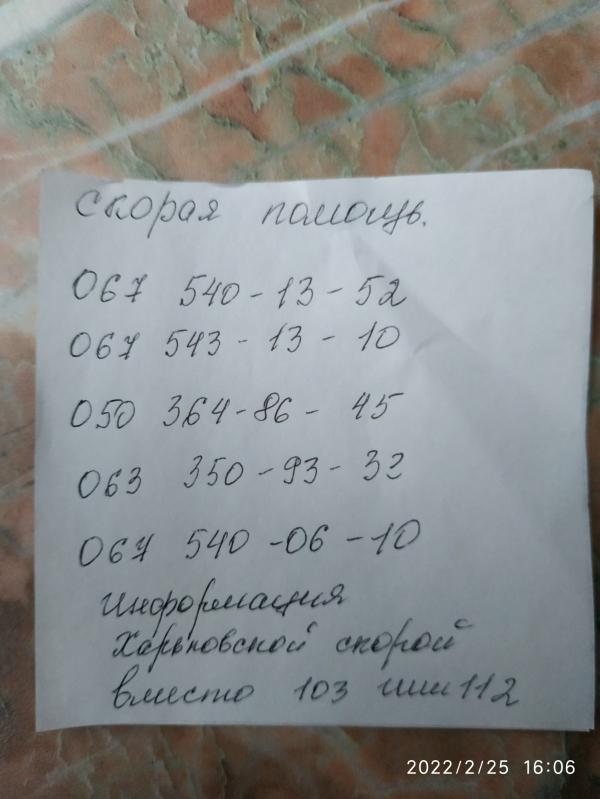 Скорая помощь.
067 540-13-52
067 543-13-10
050 364-86-45
063 350-93-32
067 540-06-10
Информация
Харьковской скорой
вместо 103 или 112
2022/2/25 16:06